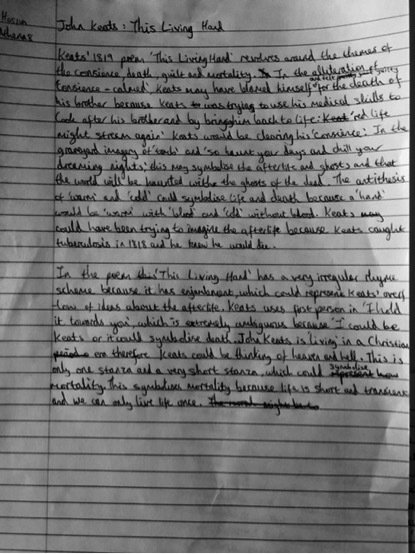 Hasan
John Keats: This Living Hand
Keats' 1819 poem 'This Living Hand' revolves around the themes of
the consience, death, guilt and mortality. In the alliteration of
'Consience - calmed' Keats may have blamed himself and felt guilty for the death of
his brother because Keats was trying to use his medical skills to
look after his brother and by bringing him back to life: 'red life
might stream again' Keats would be clearing his 'consience'. In the
graveyard imagery of 'tomb' and 'so haunt your days and chill your
dreaming nights', this may symbolise the afterlife and ghosts and that
the world will be haunted with the ghosts of the dead. The antithesis
of 'warm' and 'cold' could symbolise life and death because a 'hand'
would be 'warm' with 'blood' and 'cold' without blood. Keats may
could have been trying to imagine the afterlife because Keats caught
tuberculosis in 1818 and he knew he would die.
In the poem 'This Living Hand' has a very irregular rhyme
scheme because it has enjambment, which could represent Keats' over
flow of ideas about the afterlife. Keats uses first person in 'I hold
it towards you', which is extremely ambiguous because 'I' could be
Keats or it could symbolise death. John Keats is living in a Christian
period era therefore Keats could be thinking of heaven and hell. This is
only one stanza and a very short stanza, which could symbolise represent how
mortality. This symbolises mortality because life is short and transient
and we can only live life once.